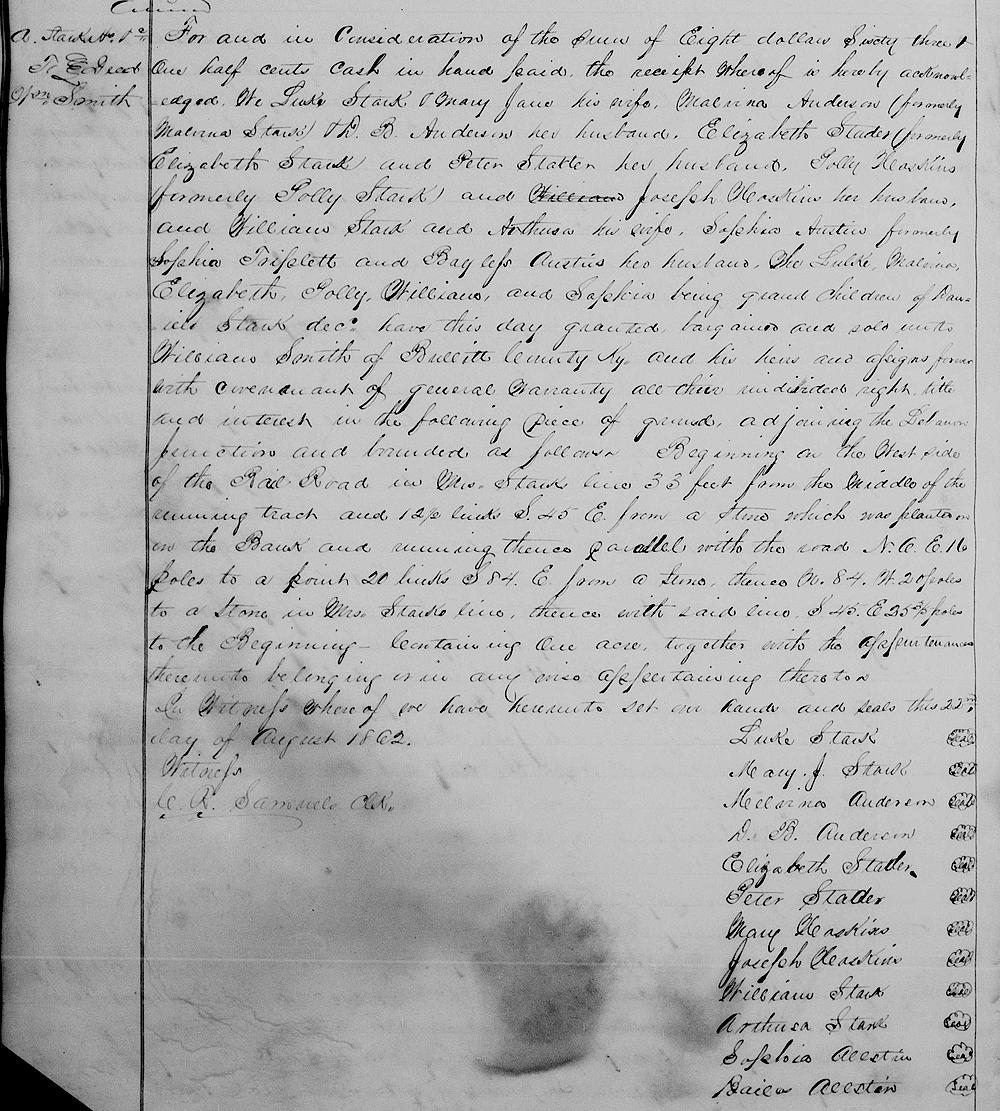 To Deed
Wm Smith
For and in Consideration of the sum of Eight dollars Sixty three &
One half cents Cash in hand paid, the receipt whereof is hereby acknowl-
edged, We Luke Stark & Mary Jane his wife, Malvina Anderson (formerly
Malvina Stark) & D. B. Anderson her husband, Elizabeth Stader (formerly
Elizabeth Stark) and Peter Statler her husband, Polly Hoskins
(formerly Polly Stark) and William Joseph Hoskins her husband,
and William Stark and Arthusa his wife, Sophia Austin formerly
Sophia Triplett and Bayless Austin her husband, The Luke, Malvina,
Elizabeth, Polly, William, and Sophia being grand children of Dan-
iels Stark decd. have this day granted, bargained and sold unto
William Smith of Bullitt County Ky. and his heirs and assigns forever
with covenant of general Warranty all their undivided right, title
and interest in the following piece of ground, adjoining the Lebanon
Junction and bounded as follows Beginning on the West side
of the Rail Road in Mrs. Starks line 33 feet from the Middle of the
running track and 12½ links S. 45 E. from a Stone which was planted
in the Bank and running thence parallel with the road N. 6. E. 16
poles to a point 20 links S 84. E. from a Stone, thence N. 84. W. 20 poles
to a Stone in Mrs. Starks line, thence with said line, S 45 E 25 poles
to the Beginning - Containing One acre, together with the appurtenances
thereunto belonging or in any wise appertaining thereto
In Witness whereof we have hereunto set our hands and seals this 22nd
day of August 1862.
Luke Stark Seal
Witness
Mary. J. Stark Seal
C. R. Samuels Clk.
Melvina Anderson Seal
D. B. Anderson Seal
Elizabeth Statler. Seal
Peter Stader Seal
Mary Hoskins Seal
Joseph Hoskins Seal
William Stark Seal
Arthusa Stark Seal
Sophia Allstin Seal
Bailes Allstin Seal